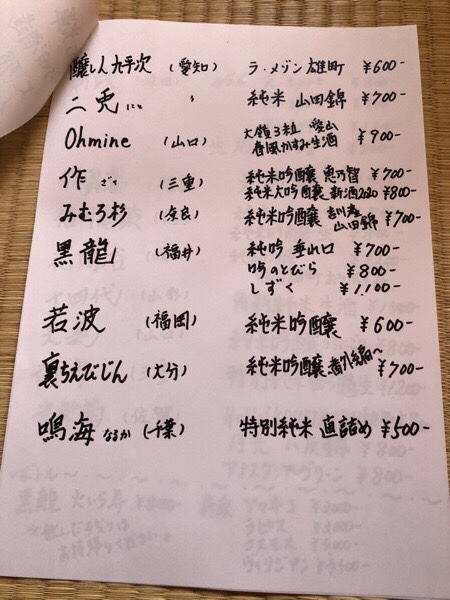 醸し人九平次 (愛知) ラ・メゾン 雄町 ¥600-
二兎 にと 〃 純米 山田錦 ¥700-
Ohmine (山口) 大嶺3粒 愛山
春風かすみ生酒 ¥900-
作 ざく (三重) 純米吟醸 恵乃智 ¥700-
純米大吟醸 新酒2020 ¥800-
みむろ杉 (奈良) 純米吟醸 吉川産
山田錦 ¥700-
黒龍 (福井) 純吟 垂れ口 ¥700-
吟のとびら ¥800-
しずく ¥1,100-
若波 (福岡) 純米吟醸 ¥600-
裏ちえびじん (大分) 純米吟醸 番外編〜 ¥700-
鳴海 なるか (千葉) 特別純米 直詰め ¥500-